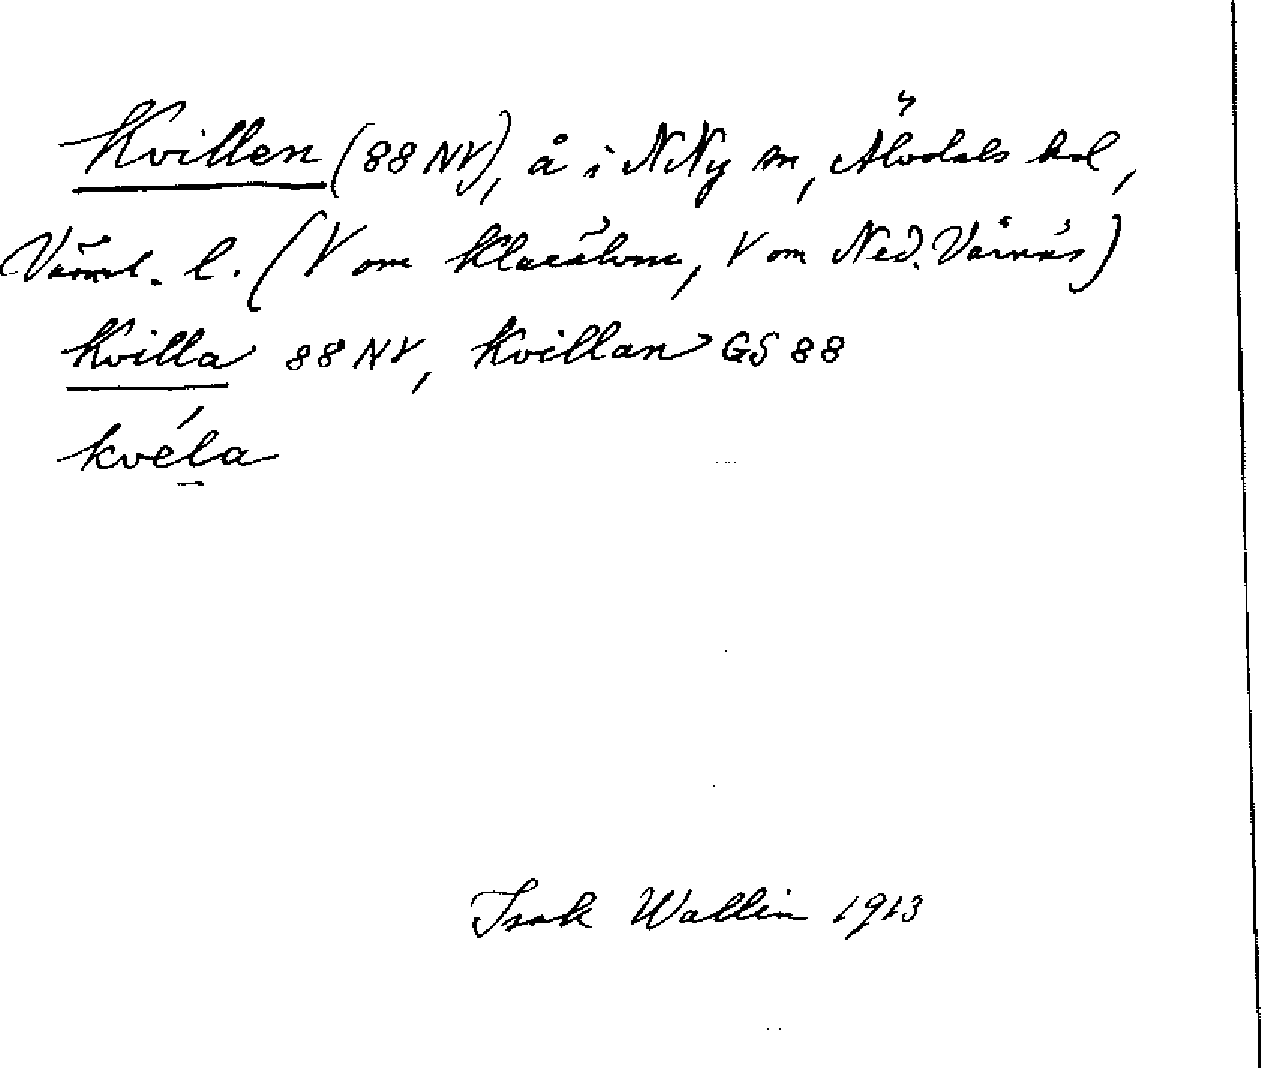 Kvillen (88 NV), å i NNy sn, Älvdals hd,
Värml. l. (V om Klarälven, V om Ned. Värnäs)
Kvilla 88 NV, Kvillan GS 88
kvéla
Isak Wallin 1913